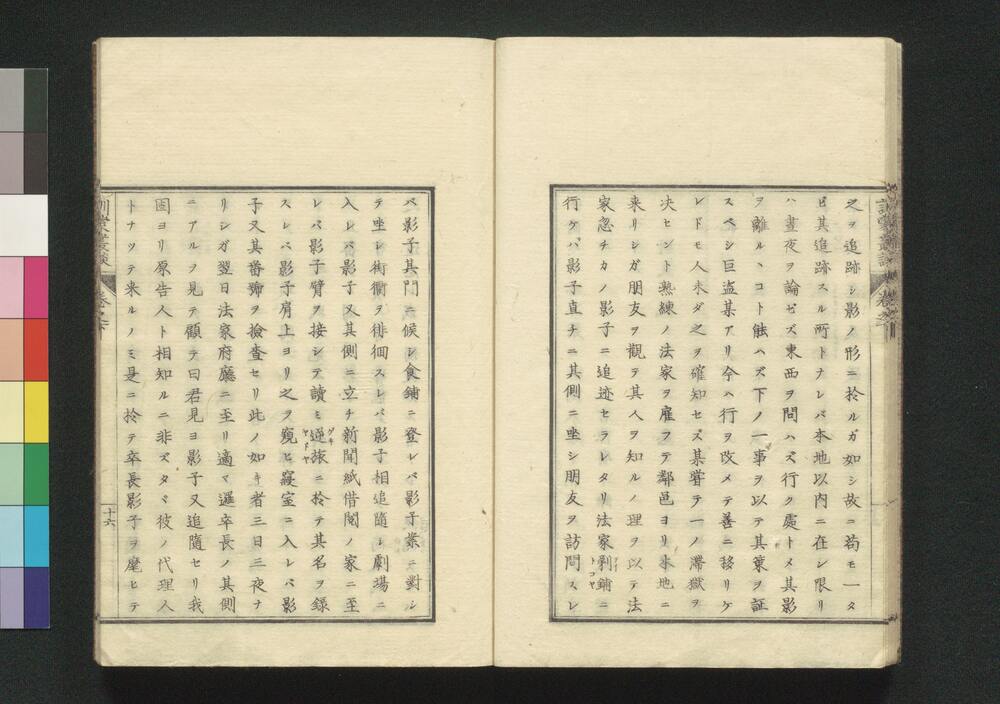 之ヲ追跡シ影ノ形ニ於ルガ如シ故ニ苟モ一タ
ビ其追跡スル所トナレバ本地以内ニ在ン限リ
ハ晝夜ヲ論ゼズ東西ヲ問ハズ行ク處トメ其影
ヲ離ルヽコト能ハズ下ノ一事ヲ以テ其策ヲ証
スベシ巨盗某アリ今ハ行ヲ改メテ善ニ移リケ
レドモ人未ダ之ヲ確知セズ某嘗テ一ノ滯獄ヲ
决セント熟練ノ法家ヲ雇フテ鄰邑ヨリ本地ニ
来リシガ朋友ヲ觀テ其人ヲ知ルノ理ヲ以テ法
家忽チカノ影子ニ追迹セラレタリ法家剃鋪ニ
トコヤ
行ケバ影子直チニ其側ニ坐シ朋友ヲ訪問スレ
バ影子其門ニ候シ食鋪ニ登レバ影子業ニ對シ
テ坐シ街衢ヲ徘徊スレバ影子相追隨シ劇場ニ
入レバ影子又其側ニ立チ新聞紙借閲ノ家ニ至
レバ影子臂ヲ接シテ讀ミ逆旅ニ於テ其名ヲ録
ヤドヤ
スレバ影子肩上ヨリ之ヲ窺ヒ寢室ニ入レバ影
子又其番號ヲ撿査セリ此ノ如キ者三日三夜ナ
リシガ翌日法家府廳ニ至リ適マ邏卒長ノ其側
ニアルヲ見テ顧テ曰君見ヨ影子又追隨セリ我
固ヨリ原告人ト相知ルニ非ズタヾ彼ノ代理人
トナツテ来ルノミ是ニ於テ卒長影子ヲ麾ヒテ
十六